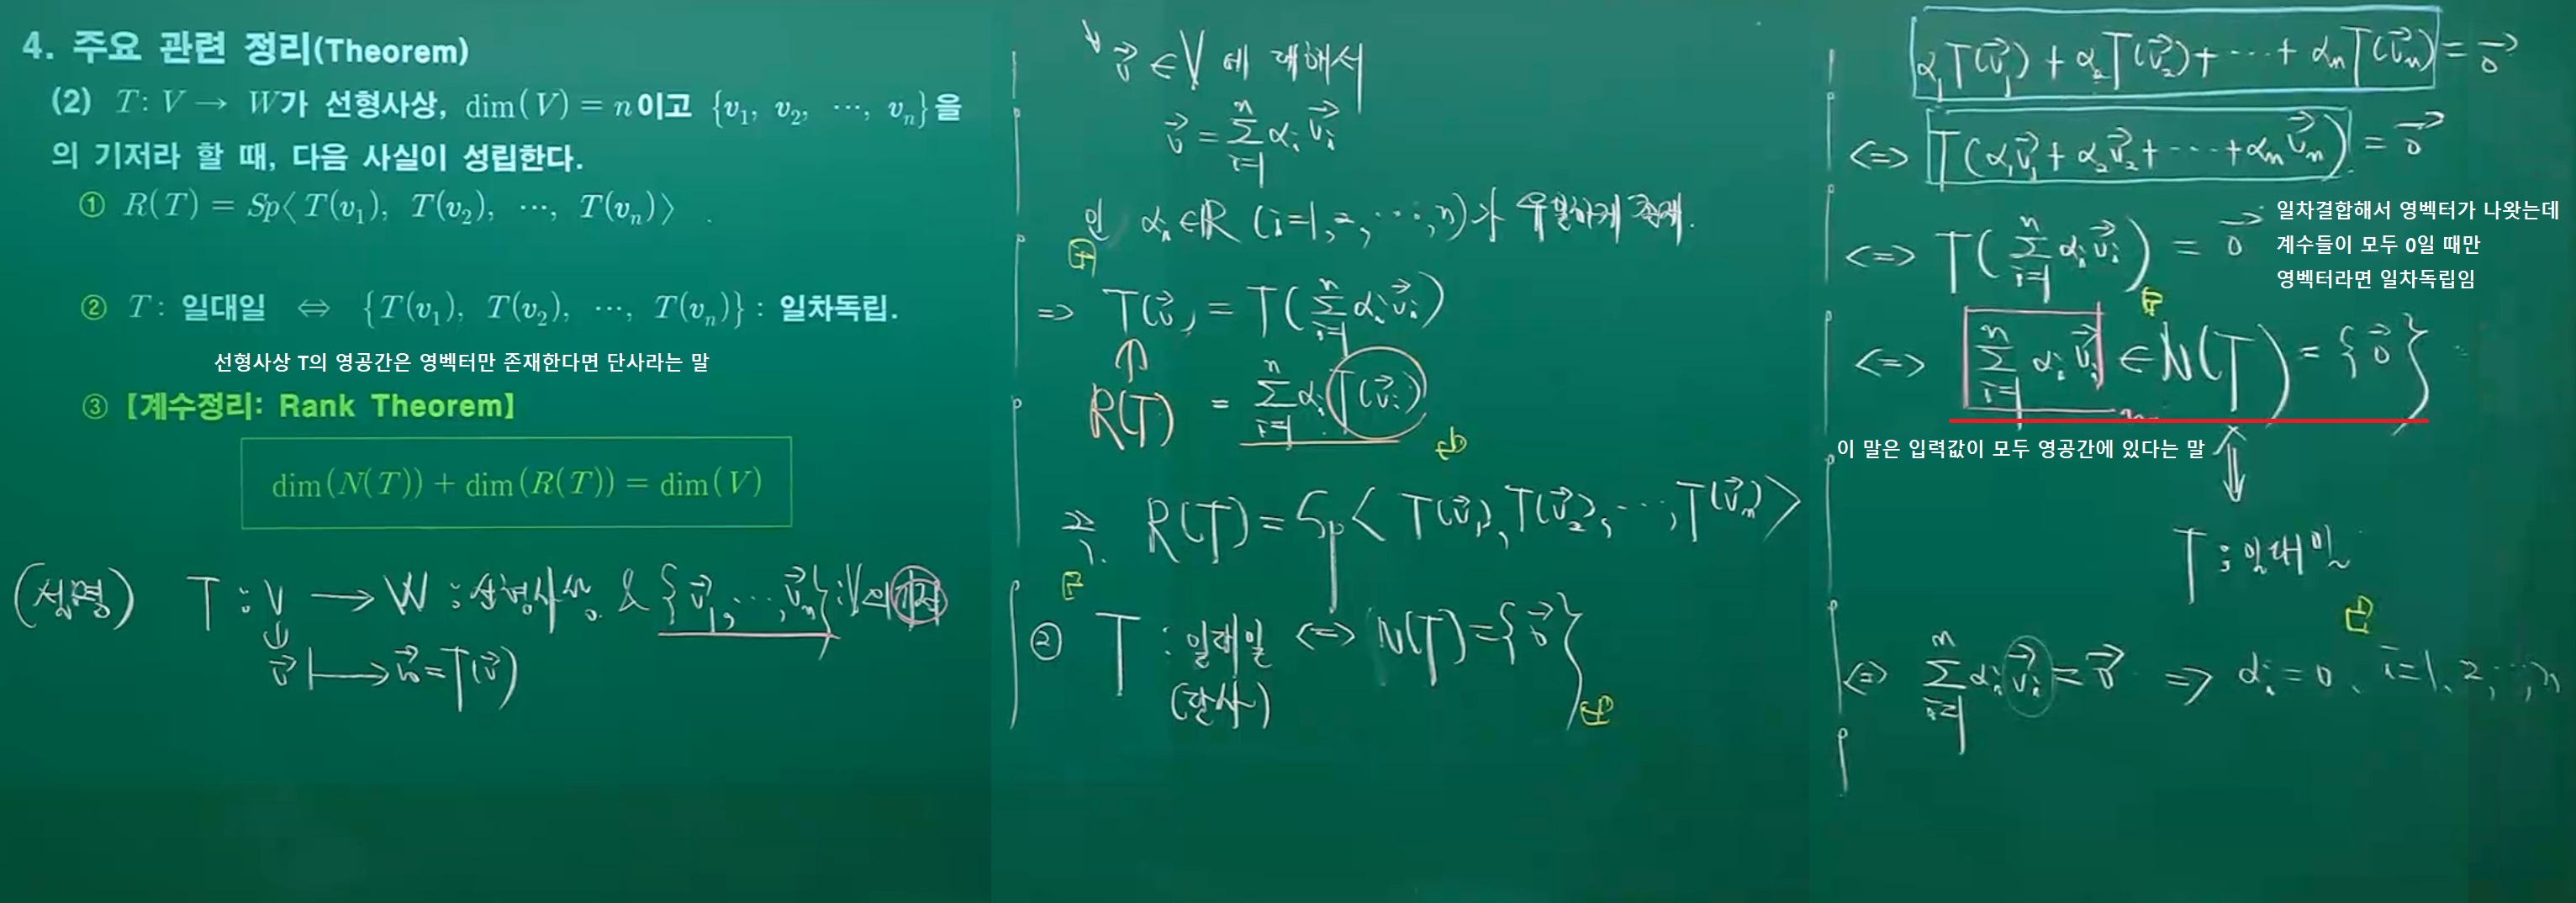 4. 주요 관련 정리(Theorem)
(2) T: V → W가 선형사상, dim(V) = n이고 {v₁, v₂, ⋯, vₙ}을
의 기저라 할 때, 다음 사실이 성립한다.
① R(T) = Sp⟨ T(v₁), T(v₂), ⋯, T(vₙ) ⟩
② T: 일대일 ⇔ {T(v₁), T(v₂), ⋯, T(vₙ)} : 일차독립.
선형사상 T의 영공간은 영벡터만 존재한다면 단사라는 말
③ 【계수정리: Rank Theorem】
dim(N(T)) + dim(R(T)) = dim(V)
(설명) T : V → W : 선형사상 & {v⃗₁, ⋯, v⃗ₙ} : V의 기저
v⃗ ↦ w⃗ = T(v⃗)
∀v⃗ ∈ V 에 대해서
v⃗ = Σᵢ₌₁ⁿ αᵢ v⃗ᵢ
인 αᵢ ∈ ℝ (i=1, 2, ⋯, n)가 유일하게 존재.
⇒ T(v⃗) = T(Σᵢ₌₁ⁿ αᵢ v⃗ᵢ)
↑
R(T) = Σᵢ₌₁ⁿ αᵢ T(v⃗ᵢ)
R(T) = Sp⟨ T(v⃗₁), T(v⃗₂), ⋯, T(v⃗ₙ) ⟩
② T : 일대일 ⇔ N(T) = {0⃗}
(단사)
α₁T(v⃗₁) + α₂T(v⃗₂) + ⋯ + αₙT(v⃗ₙ) = 0⃗
⇔ T(α₁v⃗₁ + α₂v⃗₂ + ⋯ + αₙv⃗ₙ) = 0⃗
⇔ T(Σᵢ₌₁ⁿ αᵢ v⃗ᵢ) = 0⃗
일차결합해서 영벡터가 나왓는데
계수들이 모두 0일 때만
영벡터라면 일차독립임
⇔ Σᵢ₌₁ⁿ αᵢ v⃗ᵢ ∈ N(T) = {0⃗}
이 말은 입력값이 모두 영공간에 있다는 말
⇕
T : 일대일
⇔ Σᵢ₌₁ⁿ αᵢ v⃗ᵢ = 0⃗ ⇒ αᵢ = 0, i = 1, 2, ⋯, n